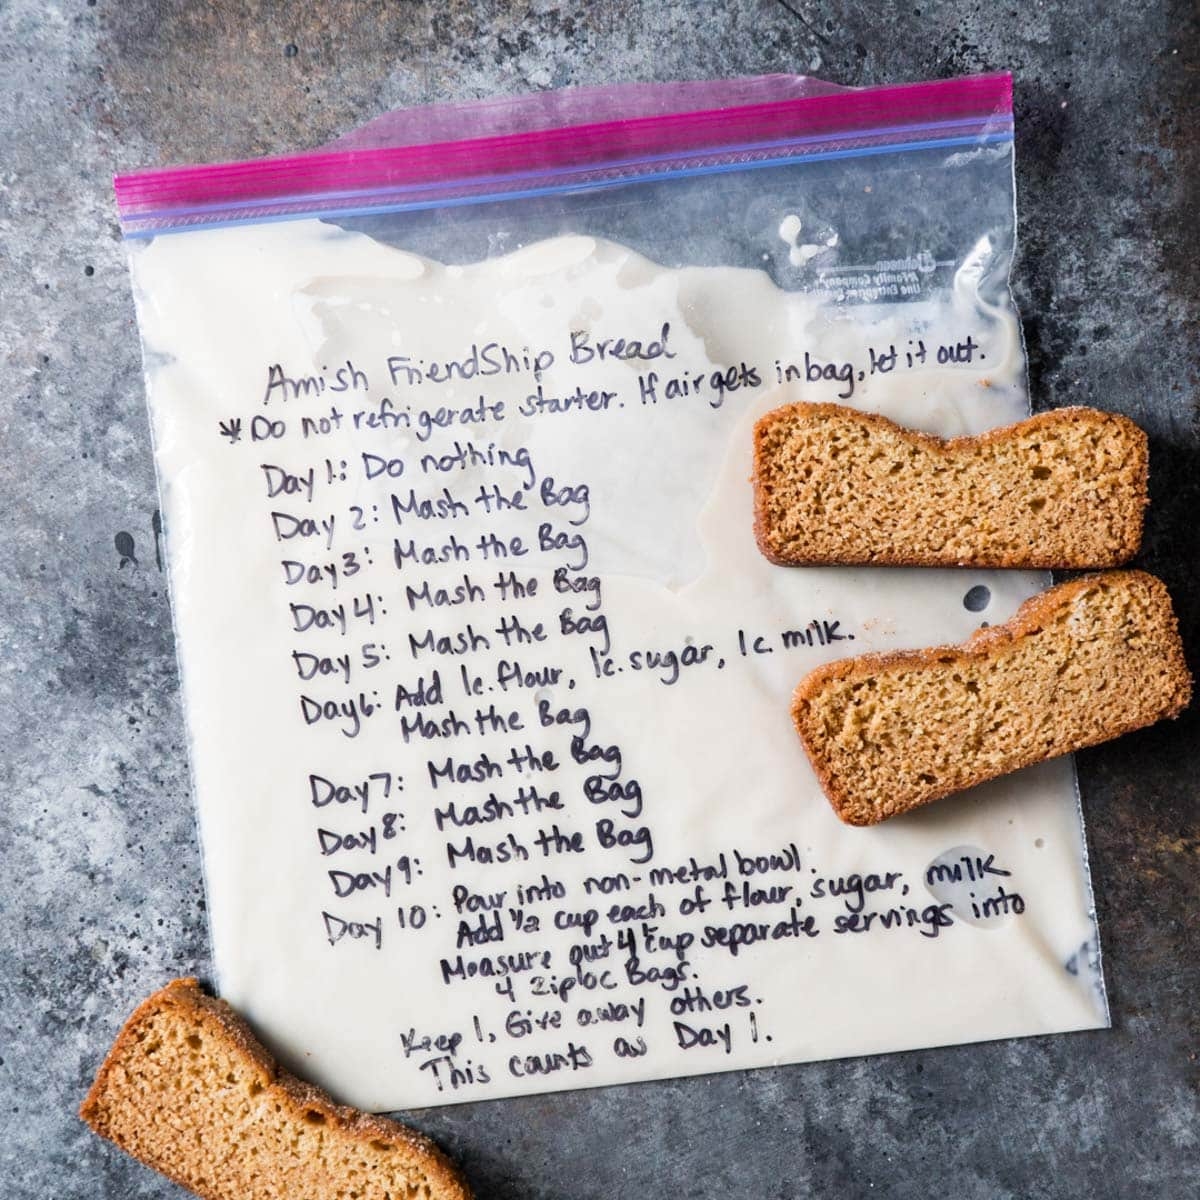 Amish FriendShip Bread
* Do not refrigerate starter. If air gets in bag, let it out.
Day 1: Do nothing
Day 2: Mash the Bag
Day 3: Mash the Bag
Day 4: Mash the Bag
Day 5: Mash the Bag
Day 6: Add 1c. flour, 1c. sugar, 1c. milk.
Mash the Bag
Day 7: Mash the Bag
Day 8: Mash the Bag
Day 9: Mash the Bag
Day 10: Pour into non-metal bowl.
Add 1/2 cup each of flour, sugar, milk
Measure out 4 cup separate servings into
4 ziploc Bags.
Keep 1, Give away others.
This counts as Day 1.
Johnson
A Family Company